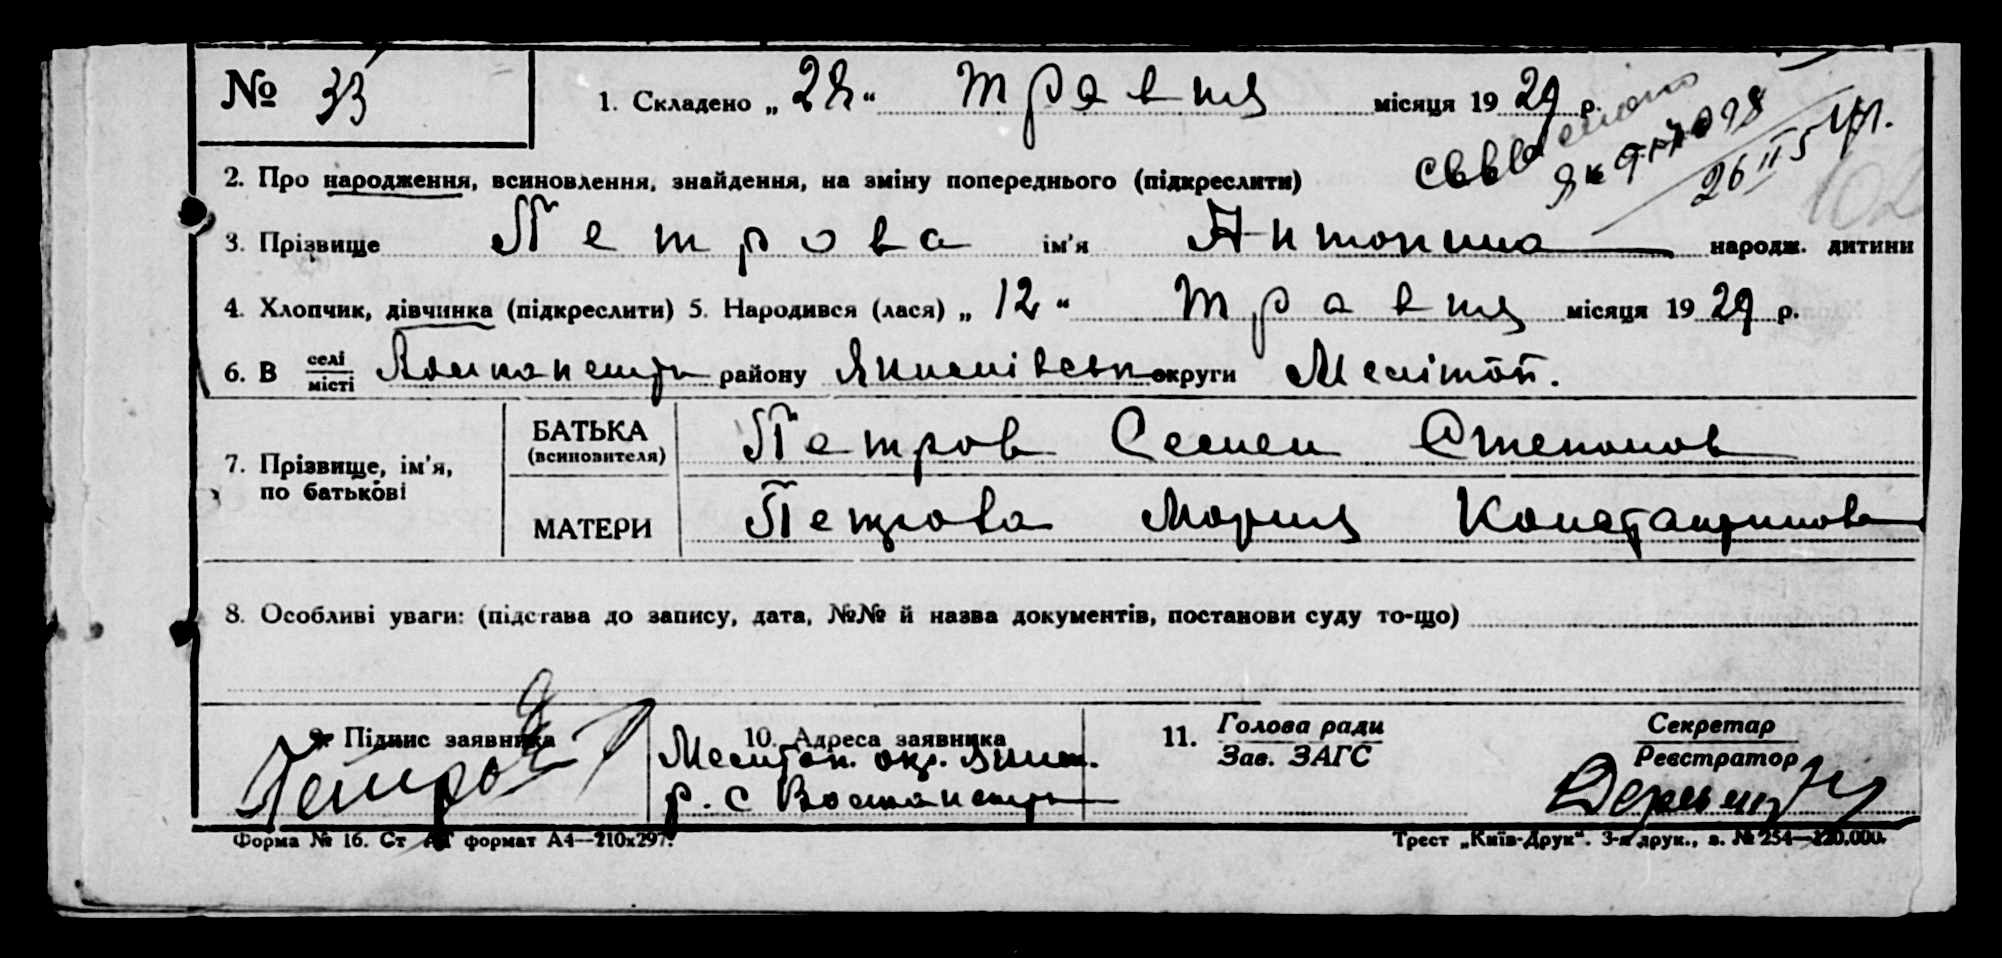 № 33 1. Складено „ 28 “ Травня місяця 19 29 р.
2. Про народження, всиновлення, знайдення, на зміну попереднього (підкреслити)
26 II 5
102
3. Прізвище Петрова ім'я Антонина народж. дитини
4. Хлопчик, дівчинка (підкреслити) 5. Народився (лася) „ 12 “ Травня місяця 19 29 р.
6. В селі/місті району Якимівськ округи Мелітоп.
7. Прізвище, ім'я, по батькові
БАТЬКА (всиновителя) Петров Семен Степанов
МАТЕРИ Петрова Мария Константинова
8. Особливі уваги: (підстава до запису, дата, №№ й назва документів, постанови суду то-що)
9. Підпис заявника 10. Адреса заявника 11. Голова ради Зав. ЗАГС Секретар Реєстратор
Петров Мелитоп. окр. Яким.
р. с
Форма № 16. Ст АТ формат А4—210х297. Трест „Київ-Друк“. 3-я друк., з. № 254—120.000.